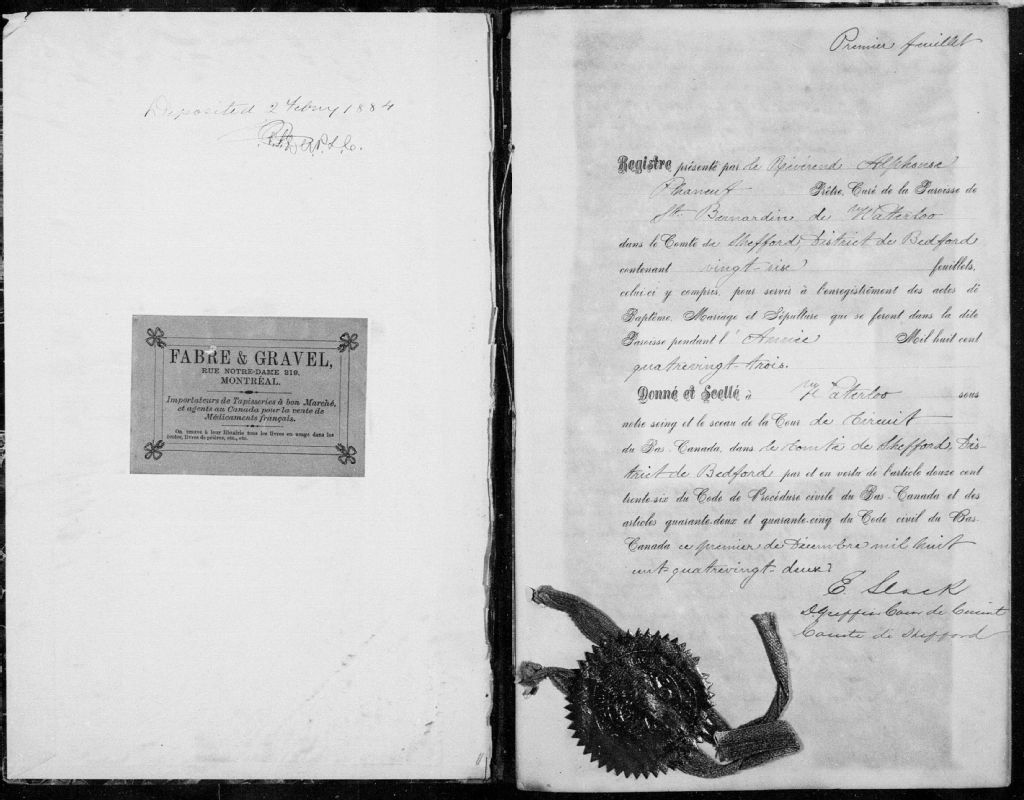 Deposited 2 Febry 1884
FABRE & GRAVEL,
RUE NOTRE-DAME 219,
MONTRÉAL.
Importateurs de Tapisseries à bon Marché,
et agents au Canada pour la vente de
Médicaments français.
On trouve à leur librairie tous les livres en usage dans les
écoles, livres de prières, etc., etc.
Premier feuillet
Registre présenté par le Révérend Alphonse
Phaneuf Prêtre, Curé de la Paroisse de
St. Bernardin de Waterloo
dans le Comté de Shefford, District de Bedford
contenant vingt-six feuillets,
celui-ci y compris, pour servir à l'enregistrement des actes de
Baptême, Mariage et Sépulture que se feront dans la dite
Paroisse pendant l'Année Mil huit cent
quatrevingt-trois.
Donné et Scellé à Waterloo sous
notre seing et le sceau de la Cour de Circuit
du Bas-Canada, dans le Comté de Shefford, Dis-
trict de Bedford par et en vertu de l'article douze cent
trente-six du Code de Procédure civile du Bas-Canada et des
articles quarante-deux et quarante-cinq du Code civil du Bas-
Canada ce premier de Décembre mil huit
cent quatrevingt-deux
E. Slack
D Greffier Cour de Circuit
Comté de Shefford